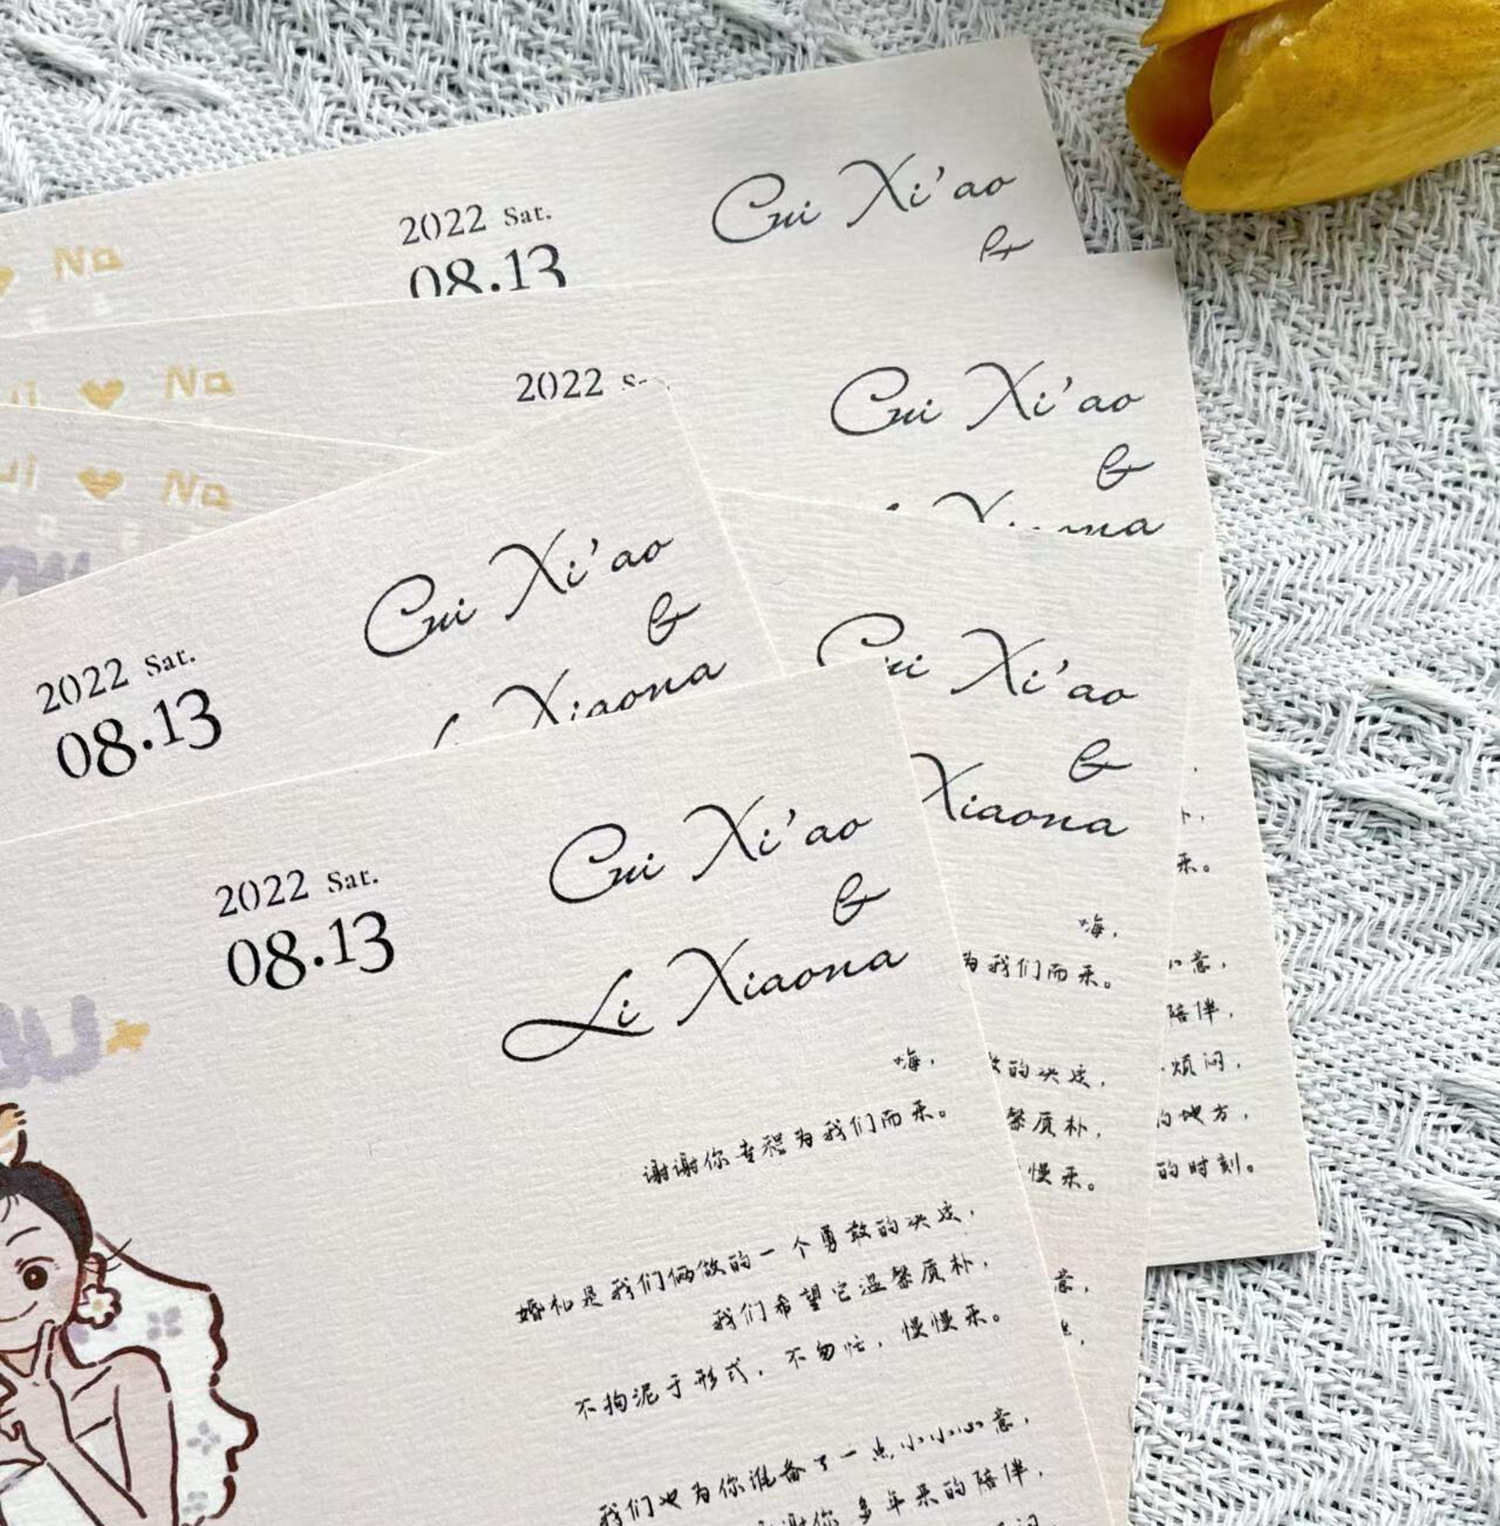 Na
2022 Sat.
08.13
Cui Xi'ao
&
Na
2022
Cui Xi'ao
&
Na
2022 Sat.
08.13
Cui Xi'ao
&
Xiaona
Cui Xi'ao
&
Xiaona
嗨,
为我们而来。
的决定,
馨质朴,
慢来。
意,
陪伴,
烦闷,
的地方,
的时刻。
2022 Sat.
08.13
Cui Xi'ao
&
Li Xiaona
嗨,
谢谢你专程为我们而来。
婚礼是我们俩做的一个勇敢的决定,
我们希望它温馨质朴,
不拘泥于形式,不匆忙,慢慢来。
我们也为你准备了一点小小心意,
谢你多年来的陪伴,